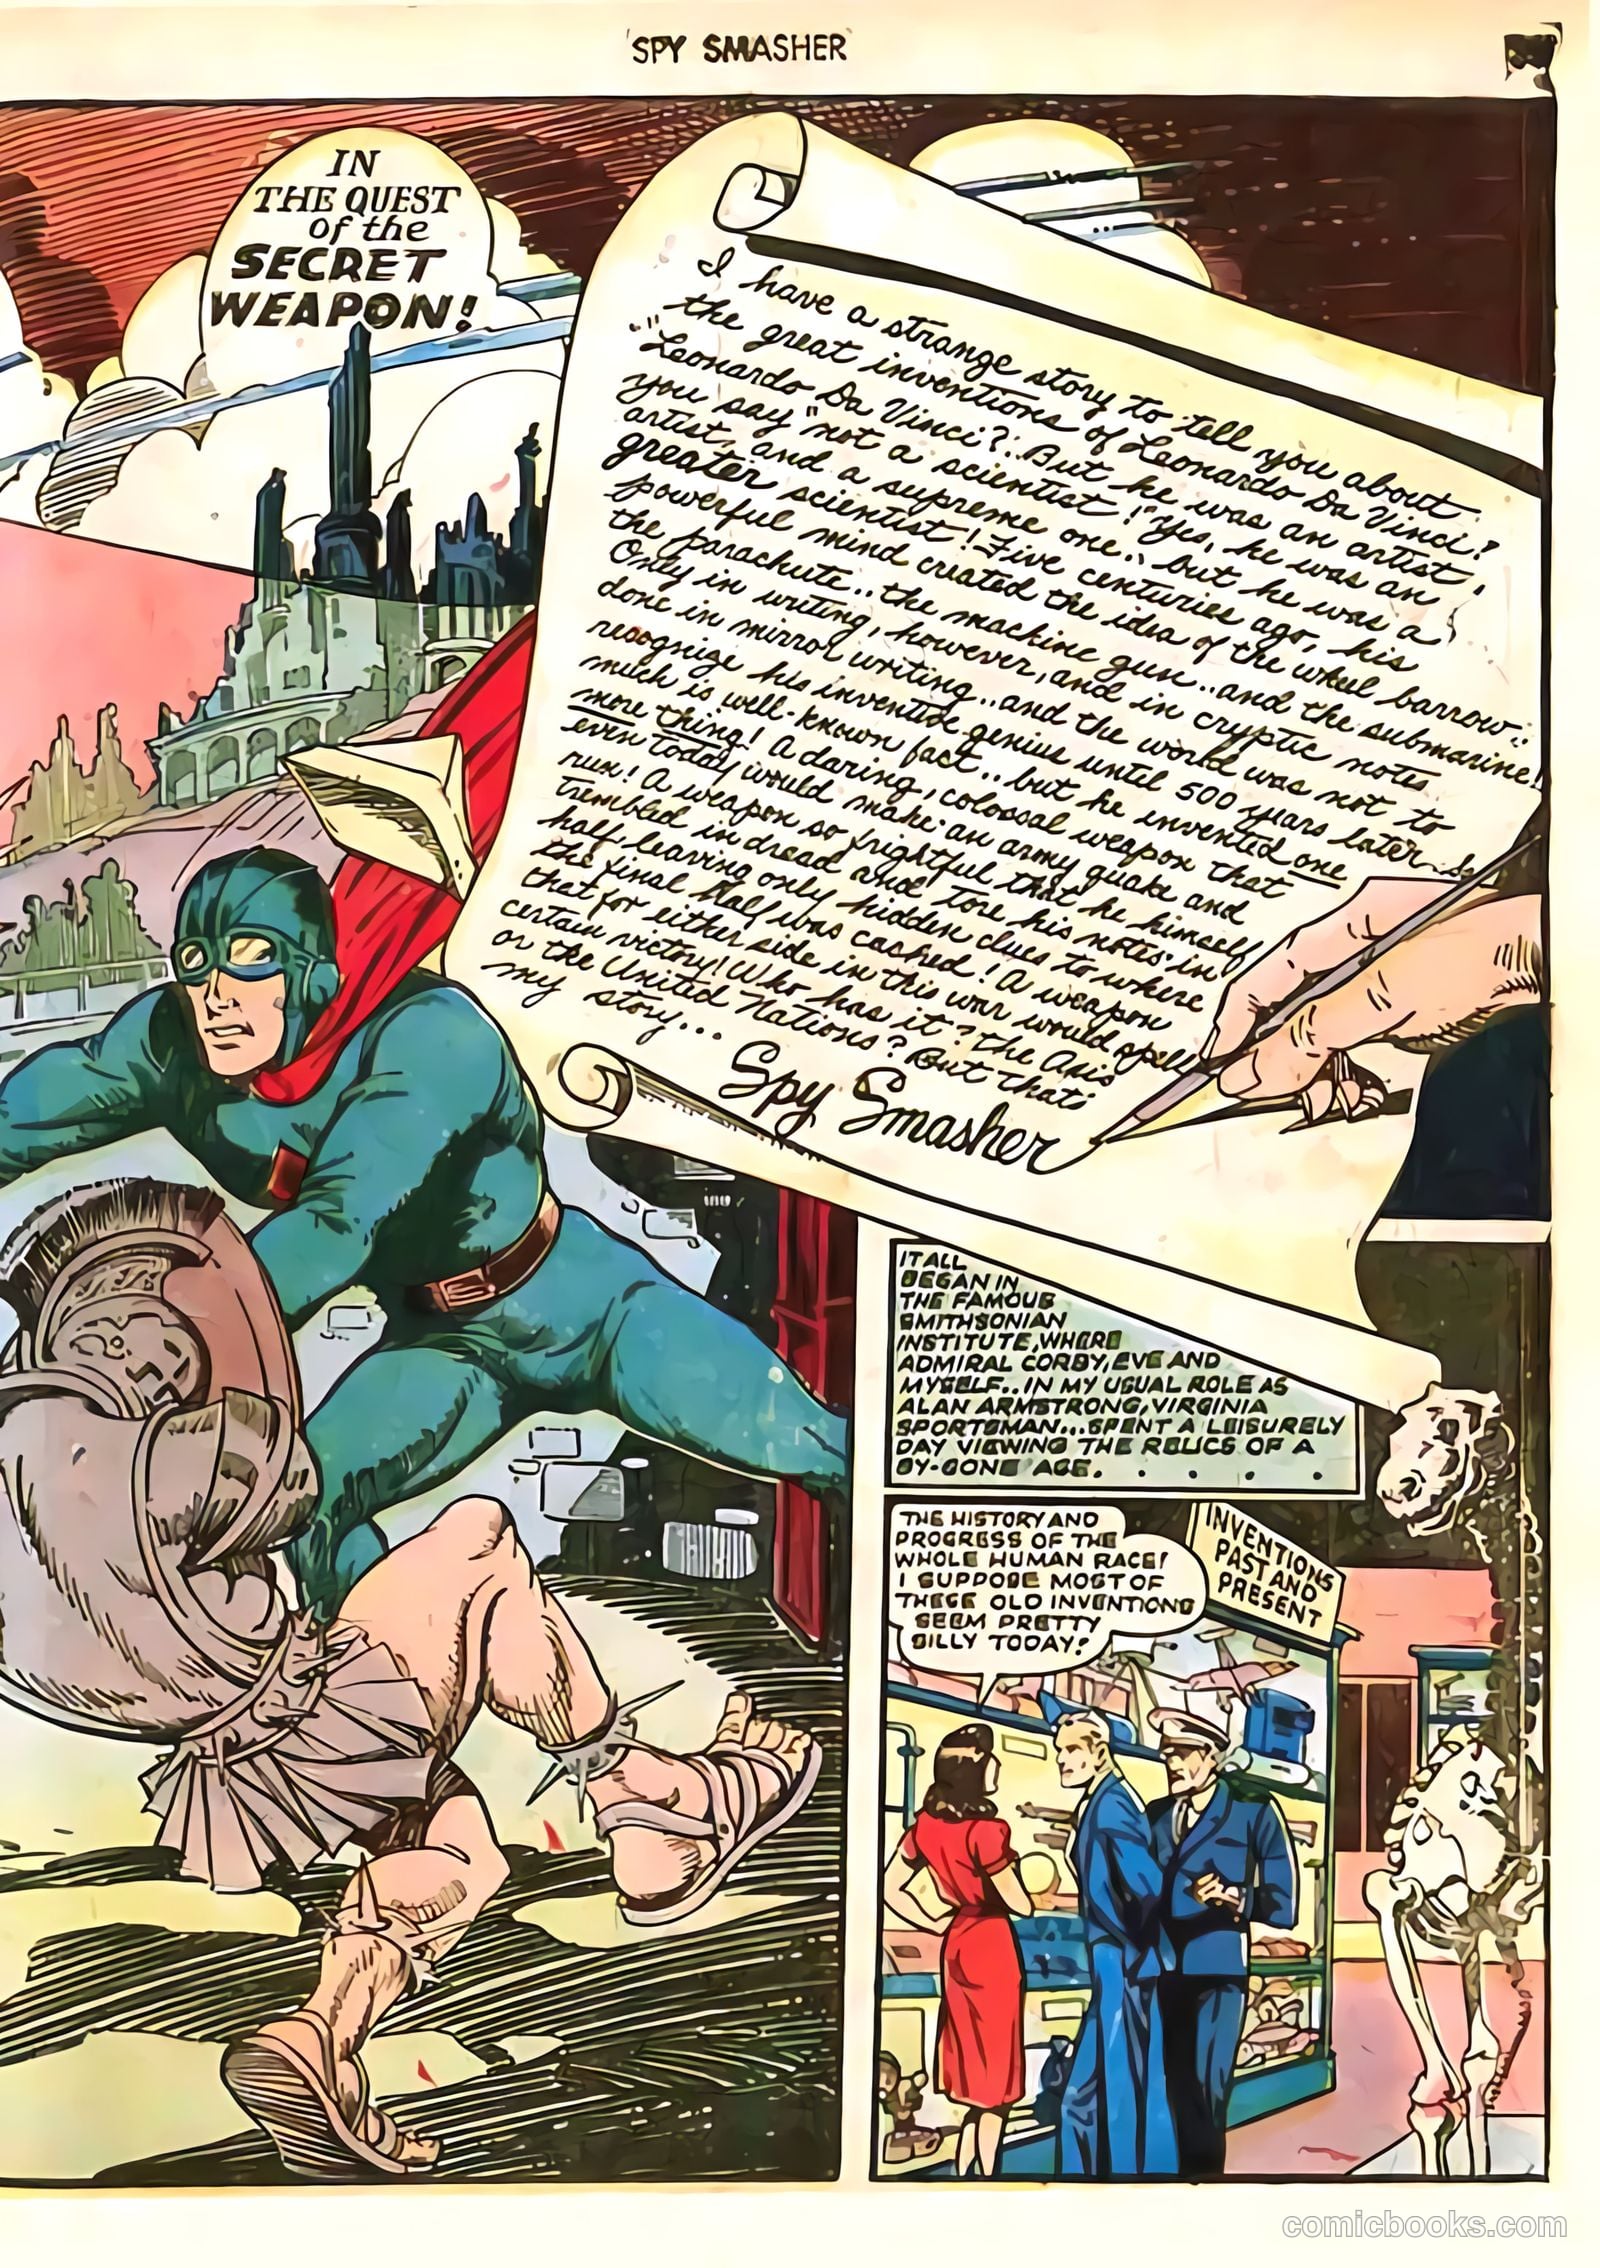 SPY SMASHER
IN
THE QUEST
of the
SECRET
WEAPON!
I have a strange story to tell you about
the great inventions of Leonardo Da Vinci!
"Leonardo Da Vinci?.. But he was an artist,
you say "not a scientist!" Yes, he was an
artist, and a supreme one.. but he was a
greater scientist! Five centuries ago, his
powerful mind created the idea of the wheel barrow..
the parachute.. the machine gun.. and the submarine!
Only in writing, however, and in cryptic notes
done in mirror writing.. and the world was not to
recognize his inventive genius until 500 years later. So
much is well-known fact.. but he invented one
more thing! A daring, colossal weapon that
even today would make an army quake and
run! A weapon so frightful that he himself
trembled in dread and tore his notes in
half, leaving only hidden clues to where
the final half was cached! A weapon
that for either side in this war would spell
certain victory! Who has it? The Axis
or the United Nations? But that's
my story...
Spy Smasher
IT ALL
BEGAN IN
THE FAMOUS
SMITHSONIAN
INSTITUTE, WHERE
ADMIRAL CORBY, EVE AND
MYSELF.. IN MY USUAL ROLE AS
ALAN ARMSTRONG, VIRGINIA
SPORTSMAN... SPENT A LEISURELY
DAY VIEWING THE RELICS OF A
BY-GONE AGE. . . . . .
THE HISTORY AND
PROGRESS OF THE
WHOLE HUMAN RACE!
I SUPPOSE MOST OF
THESE OLD INVENTIONS
SEEM PRETTY
SILLY TODAY!
INVENTIONS
PAST AND
PRESENT
comicbooks.com